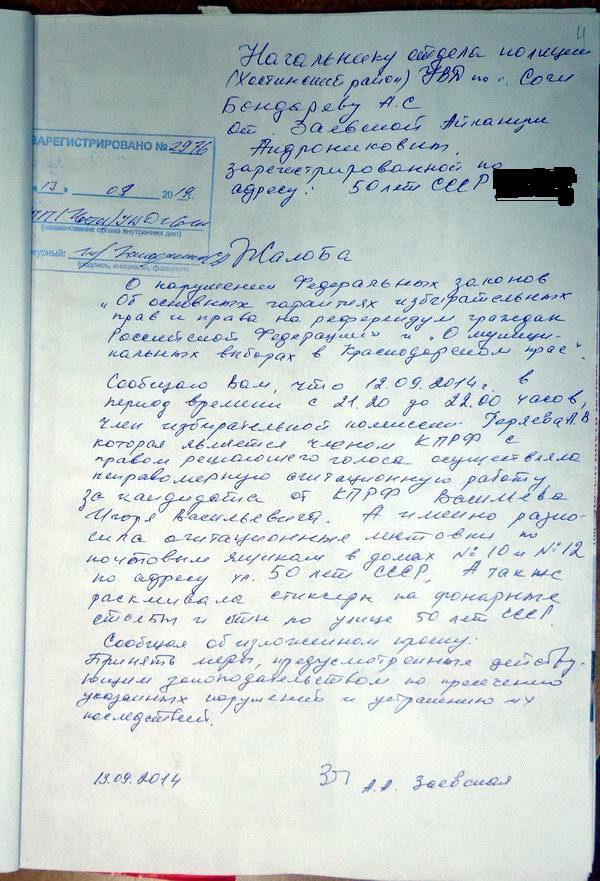 4
Начальнику отдела полиции
(Хостинский район) УВД по г. Сочи
Бондареву А.С
от Заевской
Андрониковны,
зарегистрированной по
адресу: 50 лет СССР
ЗАРЕГИСТРИРОВАНО № 2976
13 09 2014
(наименование органа внутренних дел)
журный:
(подпись, инициалы, фамилия)
Жалоба
О нарушении Федеральных законов
„Об основных гарантиях избирательных
прав и права на референдум граждан
Российской Федерации" и „О муници-
пальных выборах в Краснодарском крае".
Сообщаю Вам, что 12.09.2014г. в
период времени с 21.20 до 22.00 часов,
член избирательной комиссии Герлева Л.В
которая является членом КПРФ с
правом решающего голоса осуществляла
неправомерную агитационную работу
за кандидата от КПРФ Васильева
Игоря Васильевича. А именно разно-
сила агитационные листовки по
почтовым ящикам в домах № 10 и № 12
по адресу ул. 50 лет СССР, А также
расклеивала стикеры на фонарные
столбы и стены по улице 50 лет СССР.
Сообщая об изложенном прошу:
Принять меры, предусмотренные действу-
ющим законодательством по пресечению
указанных нарушений и устранению их
последствий.
13.09.2014
А.А. Заевская